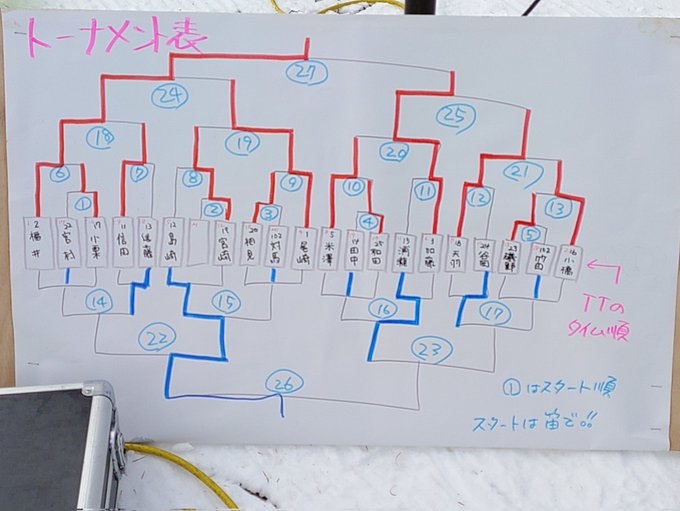 トーナメント表
27
24
25
18
19
20
21
6
7
8
9
10
11
12
13
1
2
3
4
5
2 橋井
22 宮村
17 小栗
11 信田
13 遠藤
12 島崎
15 宮崎
20 相見
102 対馬
1 尾崎
5 米澤
14 田中
25 和田
加藤
18 天羽
24 谷田
23 磯野
102 竹田
16 小橋
14
15
16
17
22
23
26
TTの
タイム順
①はスタート順
スタートは笛で!!